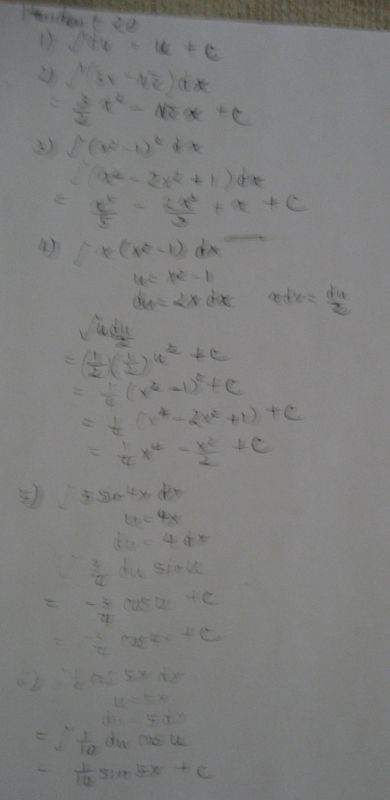 1) ∫du = u + C
2) ∫(3x - √2)dx
= 3/2 x² - √2 x + C
3) ∫(x² - 1)² dx
∫(x⁴ - 2x² + 1)dx
= x⁵/5 - 2x³/3 + x + C
4) ∫x(x² - 1) dx
u = x² - 1
du = 2x dx x dx = du/2
∫u du/2
= (1/2)(1/2)u² + C
= 1/4 (x² - 1)² + C
= 1/4 (x⁴ - 2x² + 1) + C
= 1/4 x⁴ - x²/2 + C
5) ∫3 sin 4x dx
u = 4x
du = 4 dx
3/4 du sin u
= -3/4 cos u + C
= -3/4 cos + C
cos 5x dx
u = 5x
du = 5dx
= ∫1/10 du cos u
= 1/10 sin 5x + C